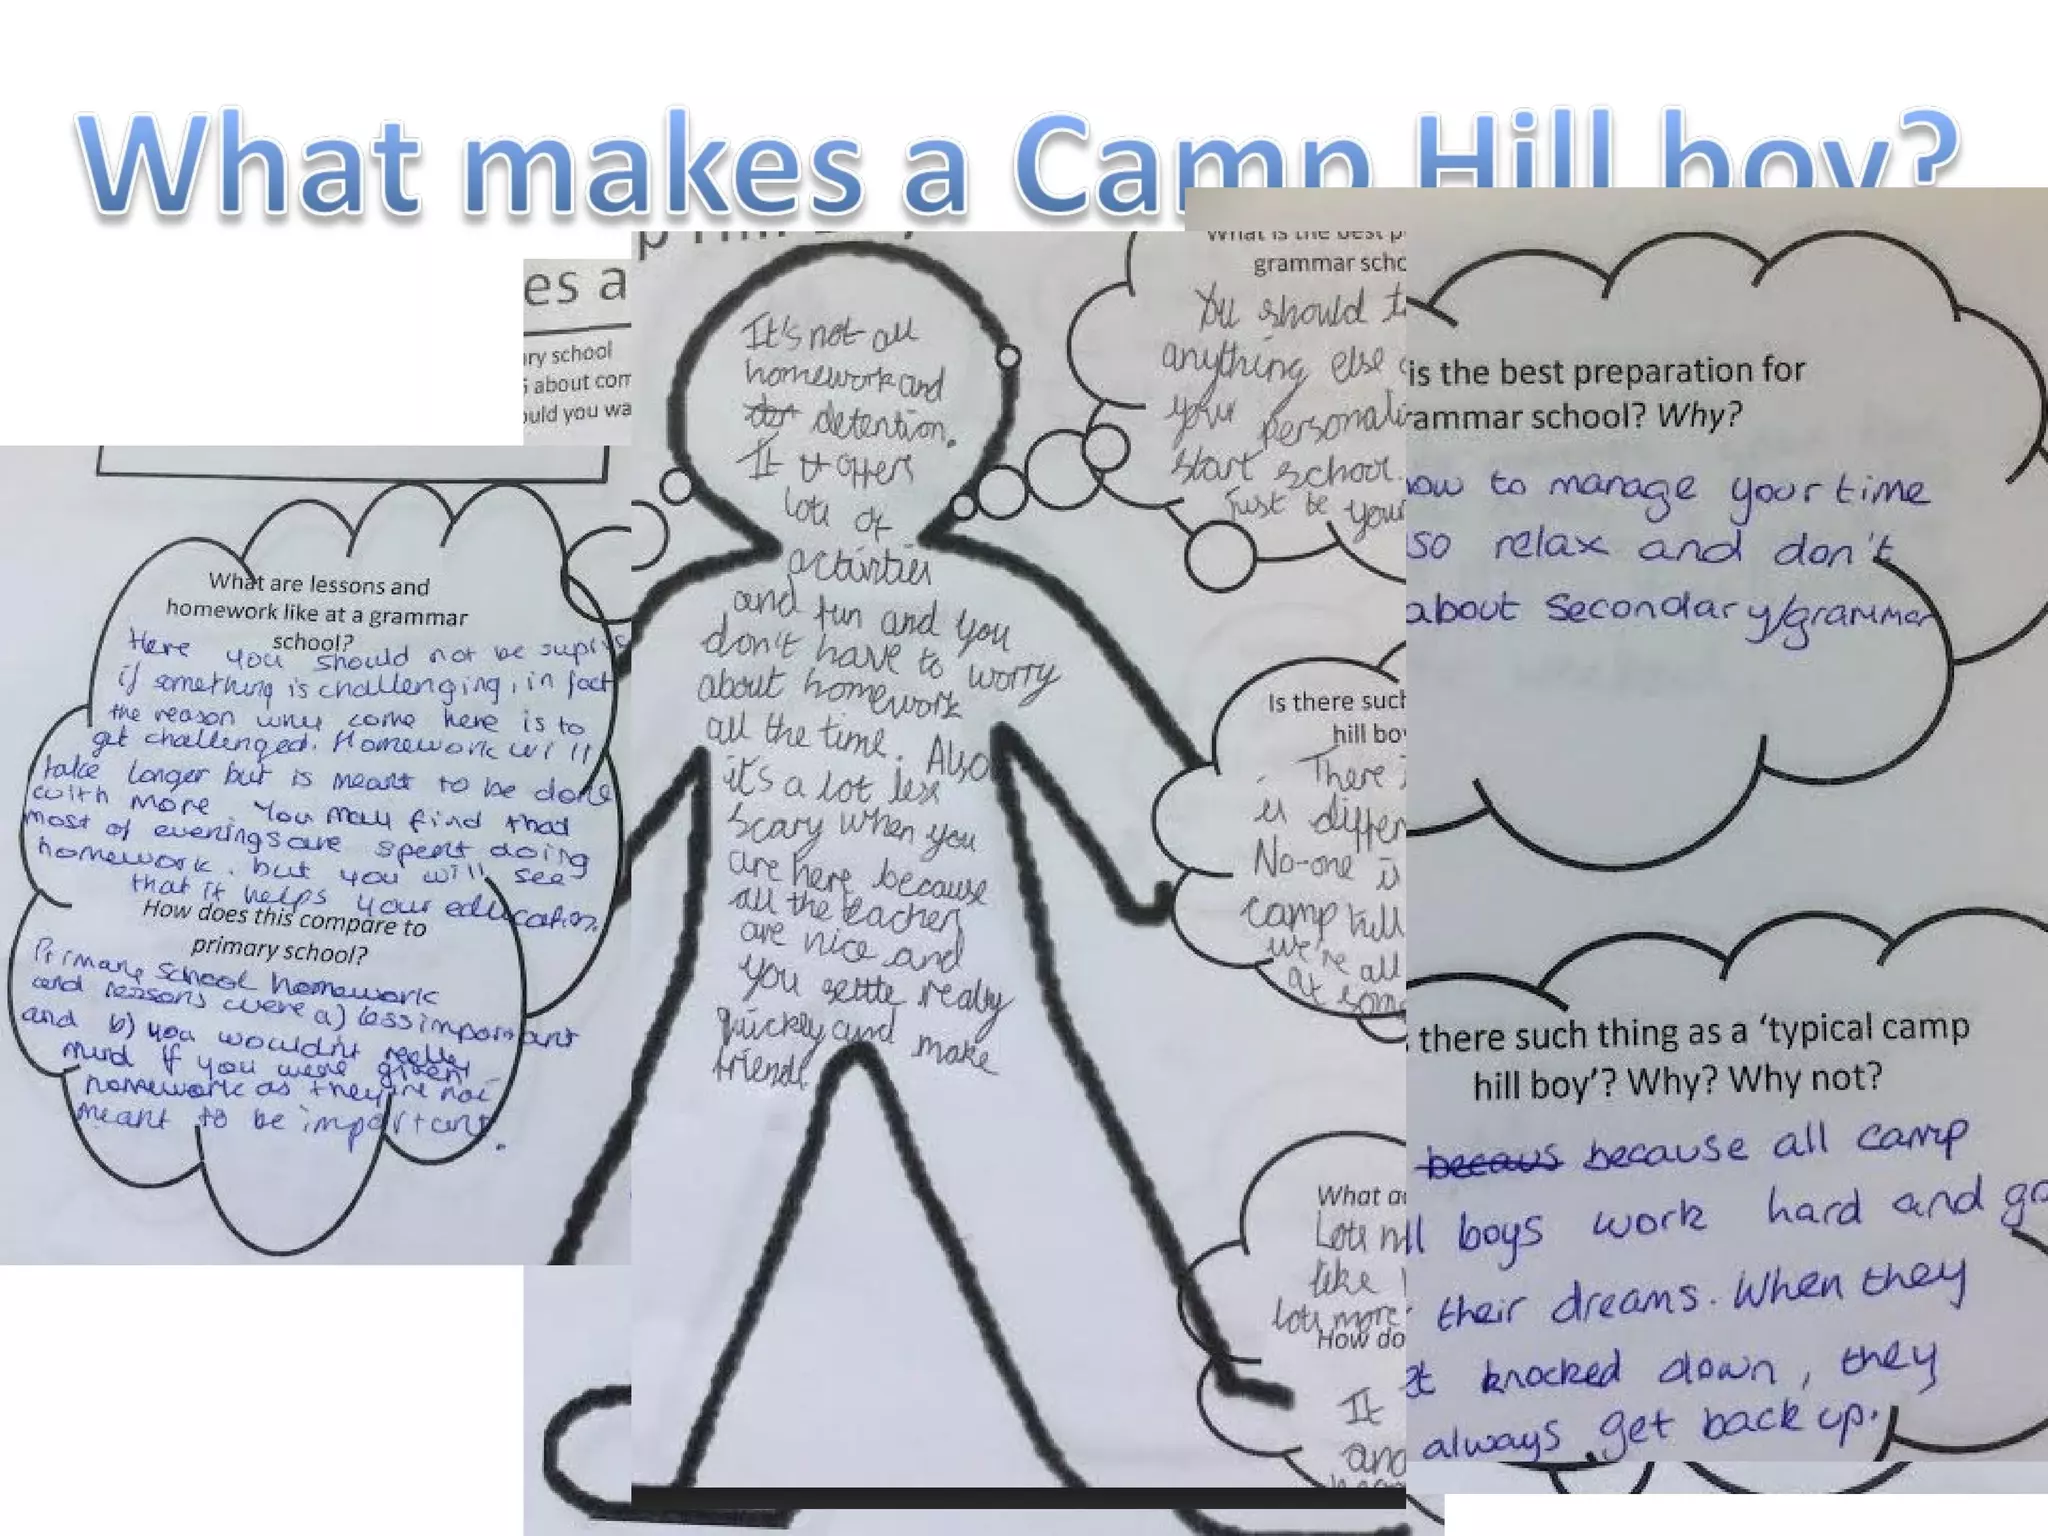 What makes a Camp Hill boy?
es a
ry school
about com
ould you wa
What are lessons and
homework like at a grammar
school?
Here you should not be supris
if something is challenging, in fact
the reason why come here is to
get challenged. Homework will
take longer but is meant to be done
with more You may find that
most of evenings are spent doing
homework. but you will see
that it helps your education.
How does this compare to
primary school?
Primary school homework
and reasons were a) less important
and b) you wouldn't really
mind if you were given
homework as they're not
meant to be important.
It's not all
homework and
detention.
It offers
lots of
activities
and fun and you
don't have to worry
about homework
all the time. Also
it's a lot less
scary when you
are here because
all the teachers
are nice and
you settle really
quickly and make
friends.
What is the best p
grammar scho
You should t
anything else
your personali
start school.
Just be your
Is there such
hill bo
There
is differ
No-one is
camp hill
we're all
at some
What a
Lots m
like
lots more
How do
It
and
is the best preparation for
rammar school? Why?
how to manage your time
so relax and don't
about secondary/grammar
there such thing as a ‘typical camp
hill boy’? Why? Why not?
becaus because all camp
ll boys work hard and go
their dreams. When they
t knocked down, they
always get back up.